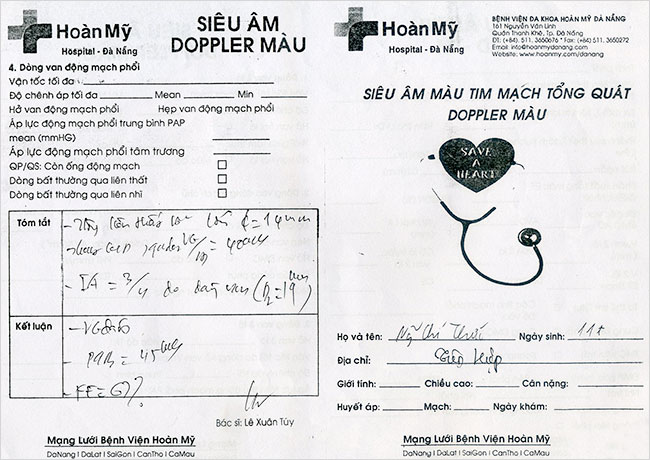 Hoàn Mỹ
Hospital - Đà Nẵng
SIÊU ÂM
DOPPLER MÀU
4. Dòng van động mạch phổi
Vận tốc tối đa
Độ chênh áp tối đa Mean Min
Hở van động mạch phổi Hẹp van động mạch phổi
Áp lực động mạch phổi trung bình PAP
mean (mmHG)
Áp lực động mạch phổi tâm trương
QP/QS: Còn ống động mạch
Dòng bất thường qua liên thất
Dòng bất thường qua liên nhĩ
Tóm tắt
= 14mm
- IA = 3/4 do
Kết luận
- PAB = 45
Bác sĩ: Lê Xuân Túy
Mạng Lưới Bệnh Viện Hoàn Mỹ
DaNang I DaLat I SaiGon I CanTho I CaMau
Hoàn Mỹ
Hospital - Đà Nẵng
BỆNH VIỆN ĐA KHOA HOÀN MỸ ĐÀ NẴNG
161 Nguyễn Văn Linh
Quận Thanh Khê, Tp. Đà Nẵng
ĐT: (+84) 511. 3650676 * Fax: (+84) 511. 3650272
Email: info@hoanmydanang.com
Website: www.hoanmydanang.com
SIÊU ÂM MÀU TIM MẠCH TỔNG QUÁT
DOPPLER MÀU
SAVE
A
HEART
Họ và tên: Ng Chí Thức Ngày sinh: 11t
Địa chỉ: Tiên Hiệp
Giới tính: Chiều cao: Cân nặng:
Huyết áp: Mạch: Ngày khám:
Mạng Lưới Bệnh Viện Hoàn Mỹ
DaNang I DaLat I SaiGon I CanTho I CaMau